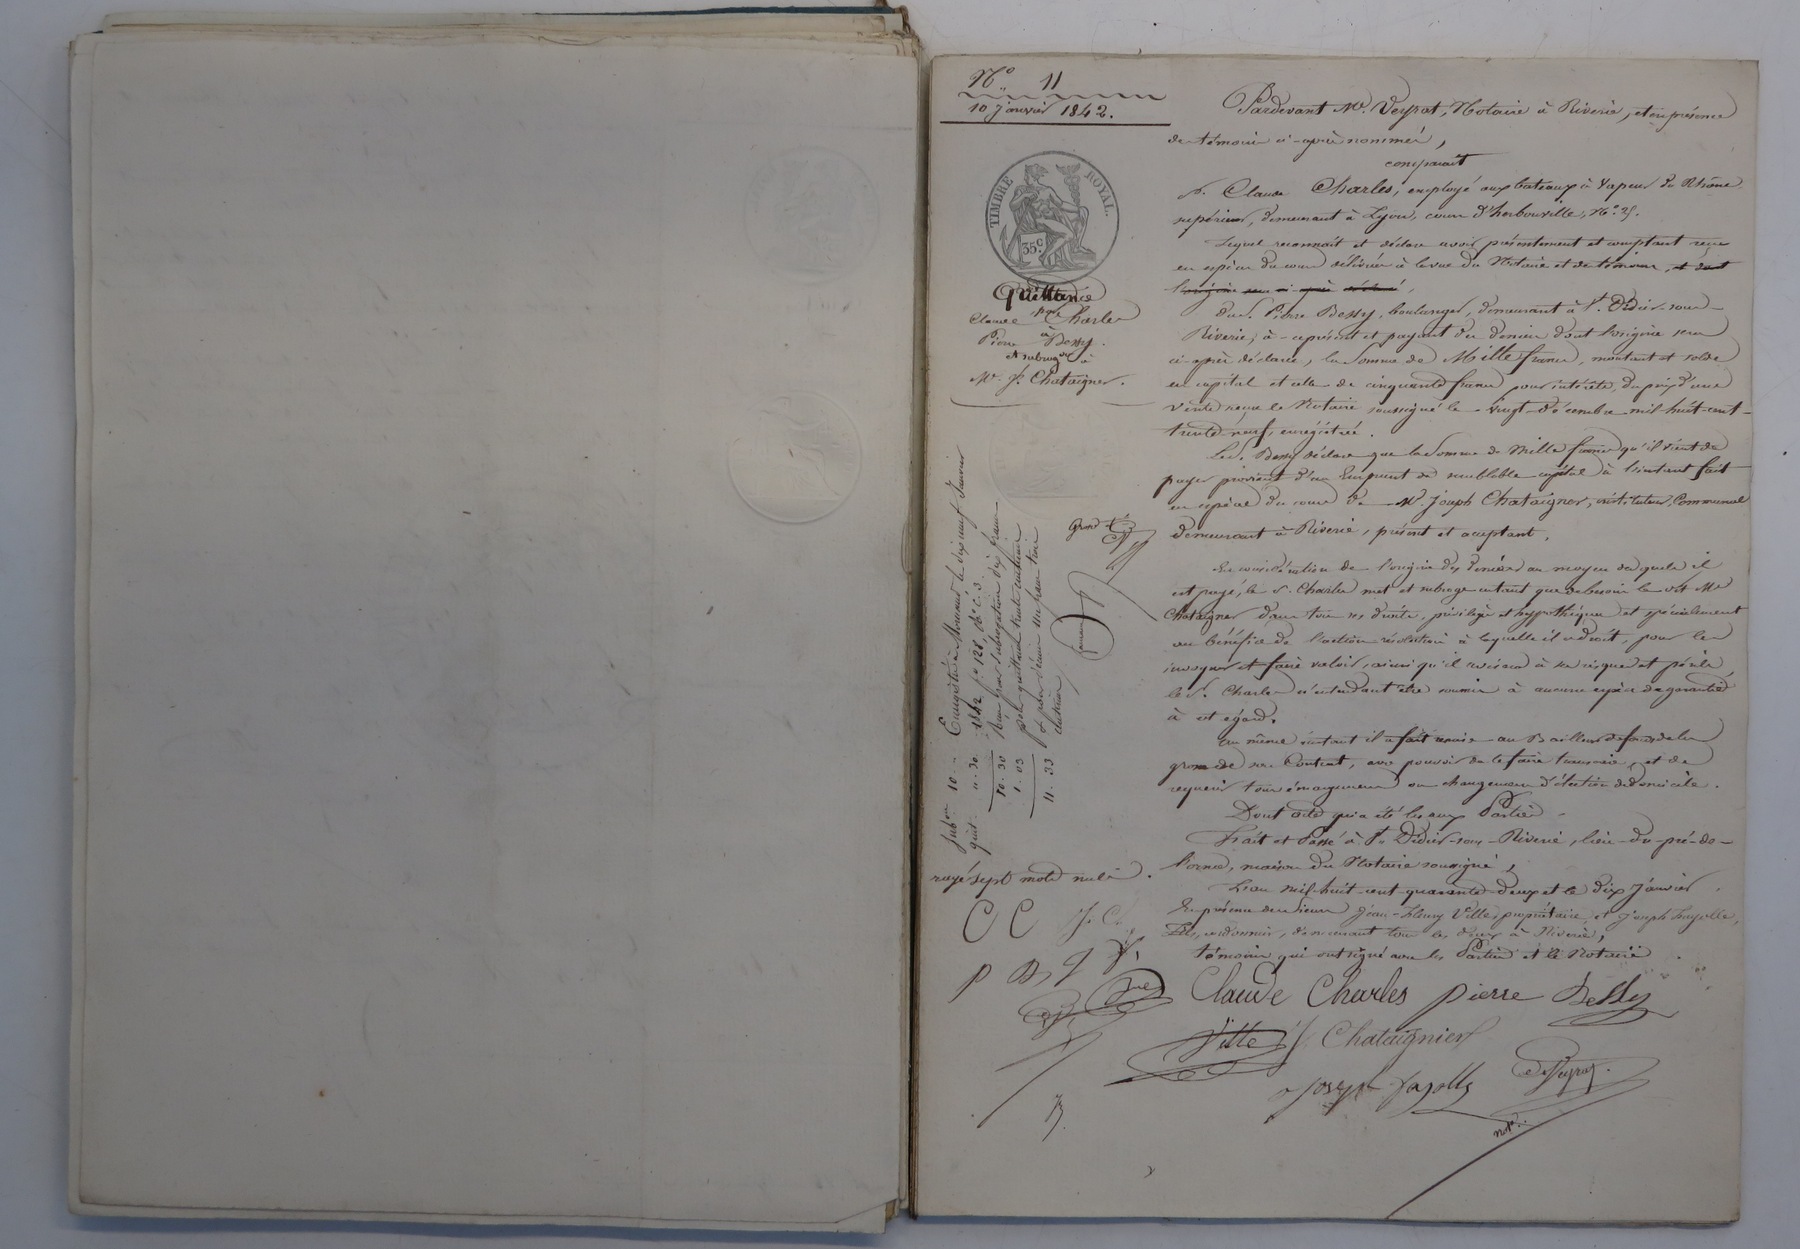 N° 11
10 Janvier 1842.
TIMBRE ROYAL.
35 c
Quittance
par
Claude Charles
à
Pierre Bessy.
et subrogon
à
Mr. J. Chataigner.
Pardevant Me. Veyrat, Notaire à Riverie, et en présence
des témoins ci-après nommés,
comparait
S. Claude Charles, employé aux bateaux à vapeur du Rhône
supérieur, demeurant à Lyon, cours d'herbouville, N°.
Lequel reconnait et déclare avoir présentement et comptant reçu
en espèces du cours délivrées à la vue du Notaire et des témoins, et dont
l'origine sera ci-après déclarée,
du S. Pierre Bessy, boulanger, demeurant à St. Didier-sous-
Riverie, à ce présent et payant des deniers dont l'origine sera
ci-après déclarée, la somme de Mille francs, montant et solde
en capital et celle de cinquante francs pour intérêts, du prix d'une
vente reçue le Notaire soussigné le vingt-décembre mil-huit-cent-
trente-neuf, enregistrée.
Le S. Bessy déclare que la somme de Mille francs qu'il vient de
payer provient d'un Emprunt de semblable capital à l'instant fait
en espèces du cours de Mr. Joseph Chataigner, instituteur Communal
demeurant à Riverie, présent et acceptant.
En considération de l'origine des deniers au moyen desquels il
est payé, le S. Charles met et subroge autant que de besoin le dit Mr
Chataigner dans tous ses droits, privilèges et hypothèques et spécialement
au bénéfice de l'action résolutoire à laquelle il a droit, pour les
invoquer et faire valoir, ainsi qu'il avisera à ses risques et périls
le S. Charles n'entendant être soumis à aucune espèce de garantie
à cet égard.
Au même instant il a fait remise au Bailleur de fonds de la
grosse de son Contrat, avec pouvoir de le faire transcrire, et de
requérir tous émargemens ou changemens d'élection de domicile.
Dont acte qui a été lu aux Parties.
Fait et Passé à St. Didier-sous-Riverie, lieu-du-pré-de-
maison du Notaire soussigné,
L'an mil-huit-cent-quarante-deux et le dix Janvier.
En présence des Sieurs Jean-Fleury Ville, propriétaire, et Joseph Fayolle,
fils, cordonnier, demeurant tous les deux à Riverie,
témoins qui ont signé avec les Parties et le Notaire.
Claude Charles pierre Bessy
Ville J. Chataignier
Joseph fayolle Veyrat
Notre.
Enregistré à Mornant le dix neuf Janvier
1842 fo 128, Vo c. 3.
Reçu pour subrogation dix francs
pour quittance trente centimes
et pour décime un franc trois
centimes
subon 10 "
quit. " 30
10. 30
1. 03
11. 33
rayé sept mots nuls.
C C J. C.
P B J f.